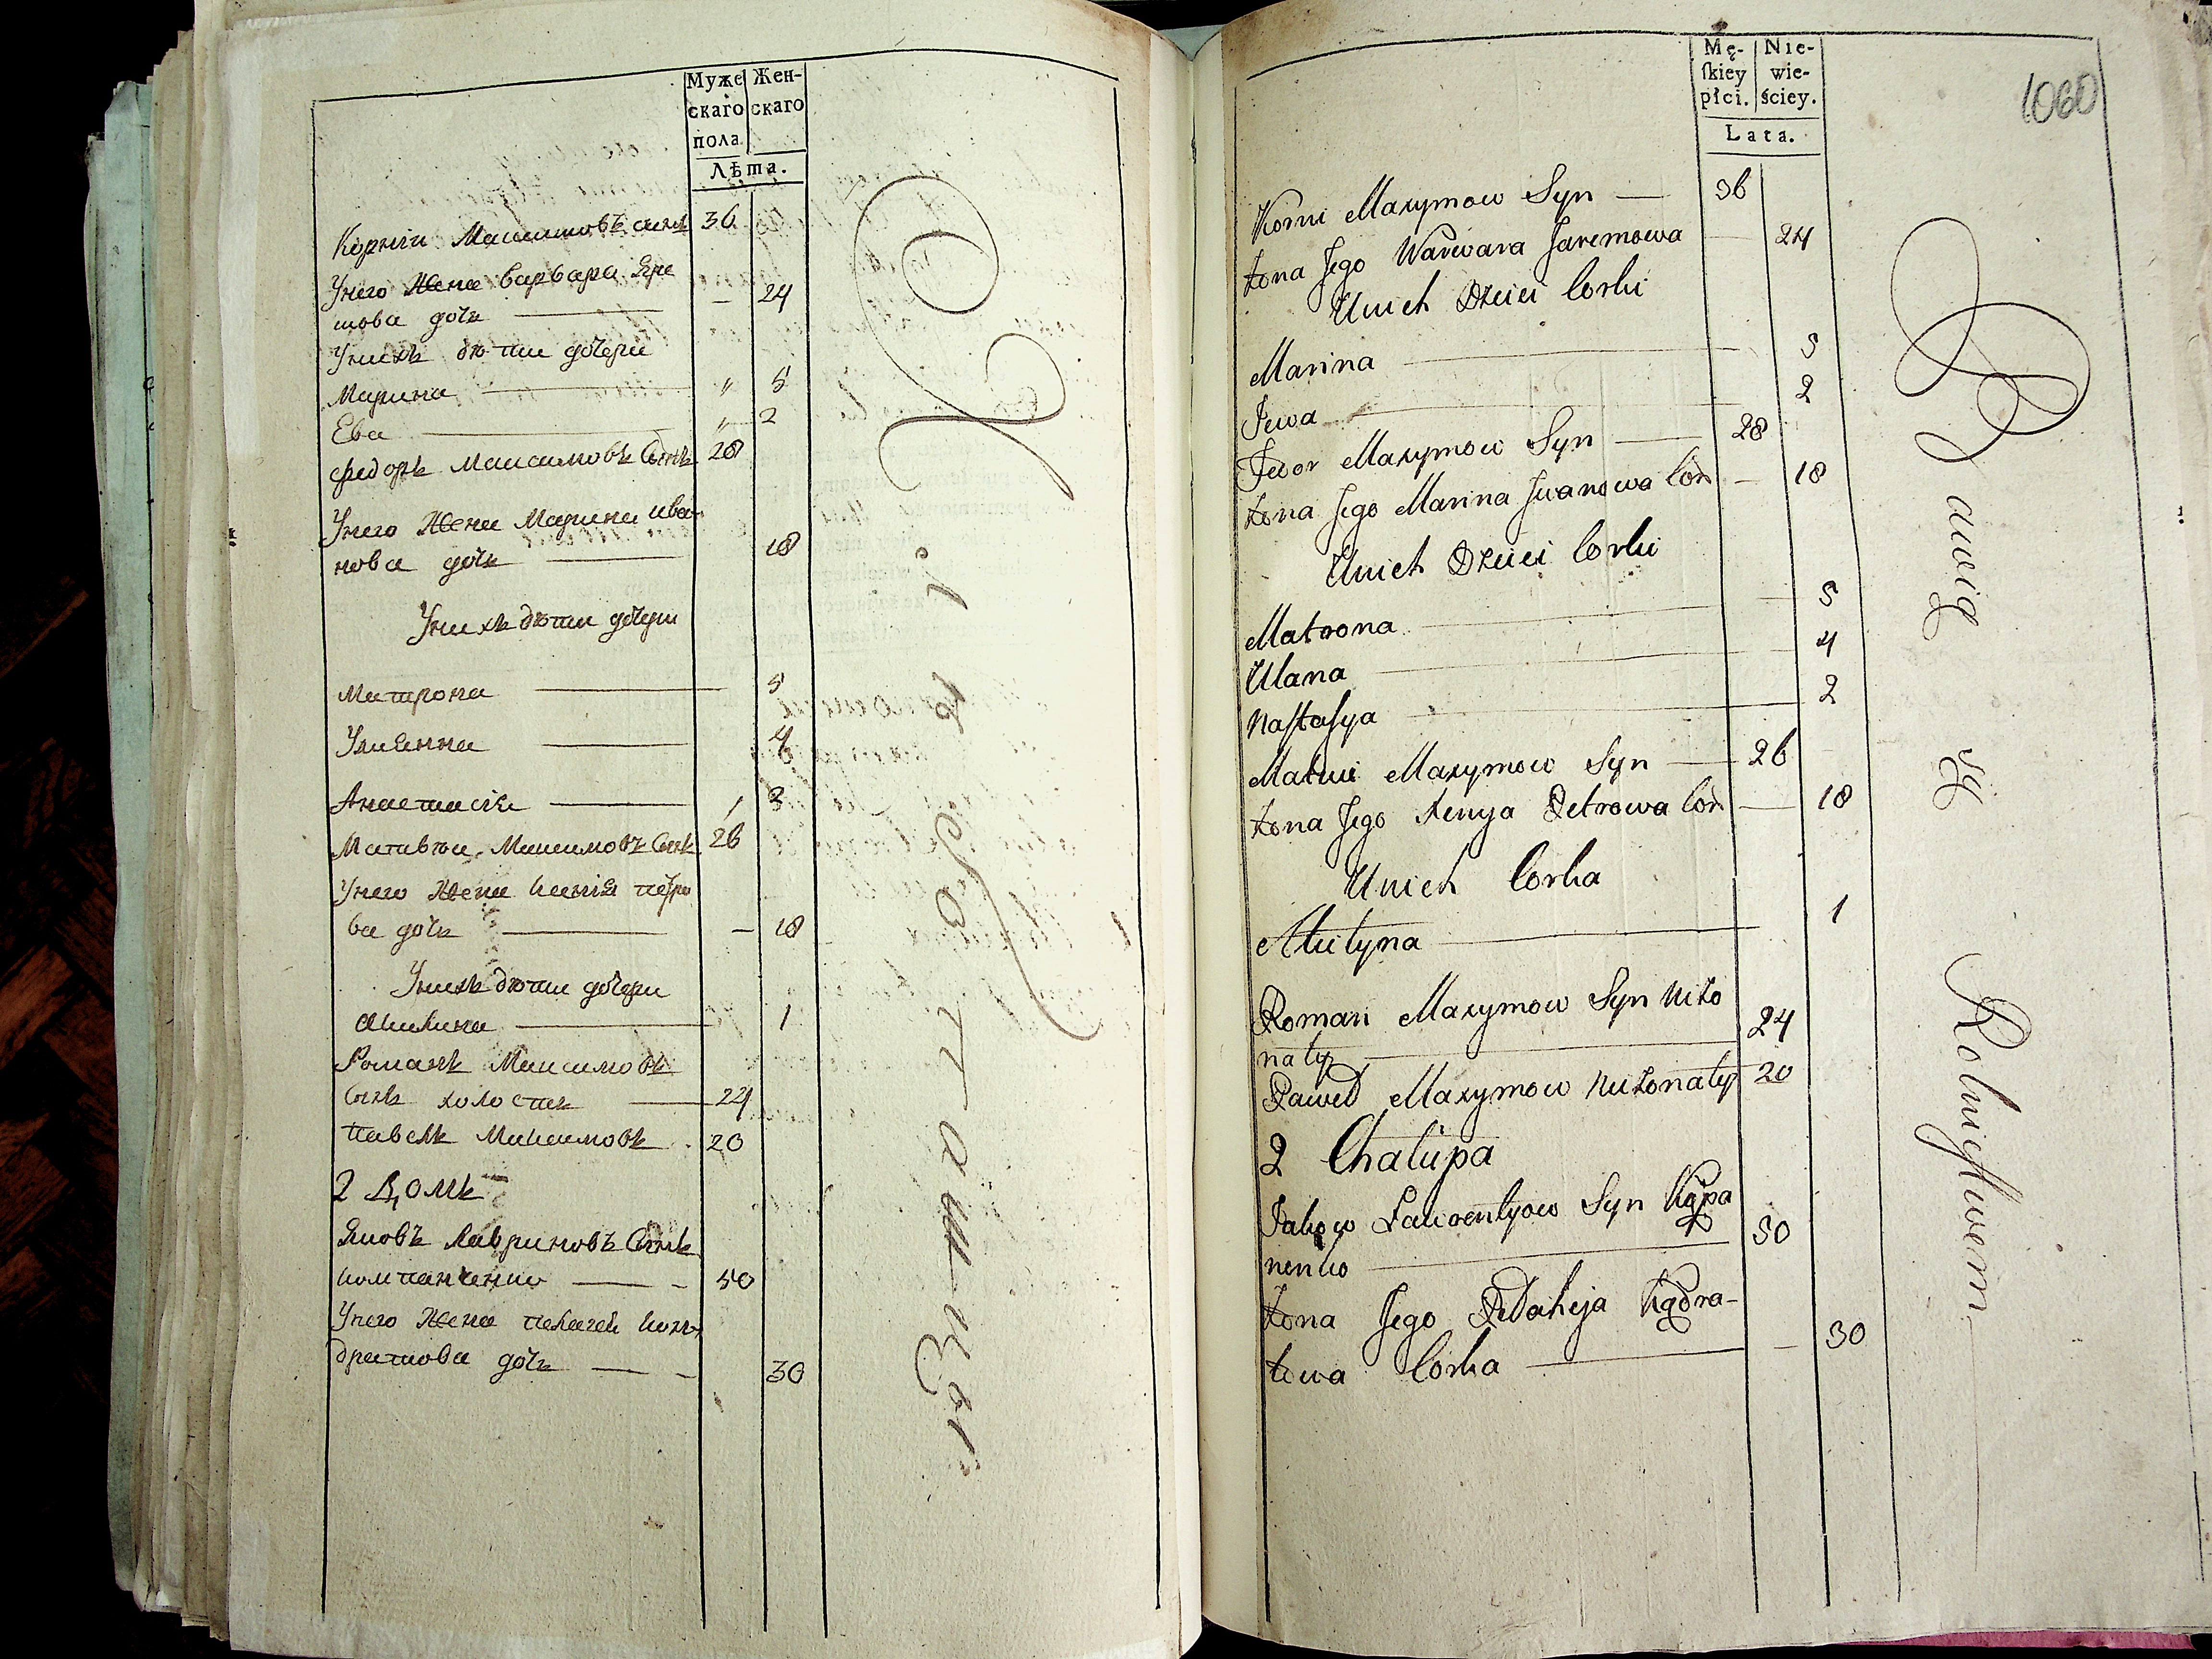 Муже
скаго
пола.
Жен-
скаго
Лѣта.
Корнѣй Максимовъ сынъ 36
Унего Жена Варвара Яре
мова дочь — 24
Унихъ дѣти дочери
Марина „ 5
Ева „ 2
Федоръ Максимовъ Сынъ 28
Унего Жена Марина ива-
нова дочь 18
Унихъ дѣти дочери
Матрона 5
Ульянна 4
Анастасія 3
Матвѣй Максимовъ Сынъ 26
Унего Жена Ксенія петро
ва дочь — 18
Унихъ дѣти дочери
Акилина 1
Романъ Максимовъ
Сынъ холостъ 24
Павелъ Максимовъ 20
2 Домъ
Яковъ Лавриновъ Сынъ
50
Унего Жена Пелагея Кон-
дратова дочь 30
Mę-
skiey
płci.
Nie-
wie-
ściey.
Lata.
1060
Korni Maxymow Syn — 36
Żona Jego Warwara Jaremowa — 24
Unich Dzieci Corki
Marina 5
Jewa 2
Fedor Maxymow Syn — 28
Żona Jego Marina Jwanowa Cor — 18
Unich Dzieci Corki
Matrona 5
Ulana 4
Nastasya 2
Matwi Maxymow Syn — 26
Żona Jego Xenya Petrowa Cor — 18
Unich Corka
Akilyna 1
Roman Maxymow Syn Nieżo
naty 24
Paweł Maxymow Nieżonaty 20
2 Chałupa
Jakow Laurentyow Syn
nenko 50
Żona Jego Pełahija Kądra-
towa Corka — 30
z Rolnictwem